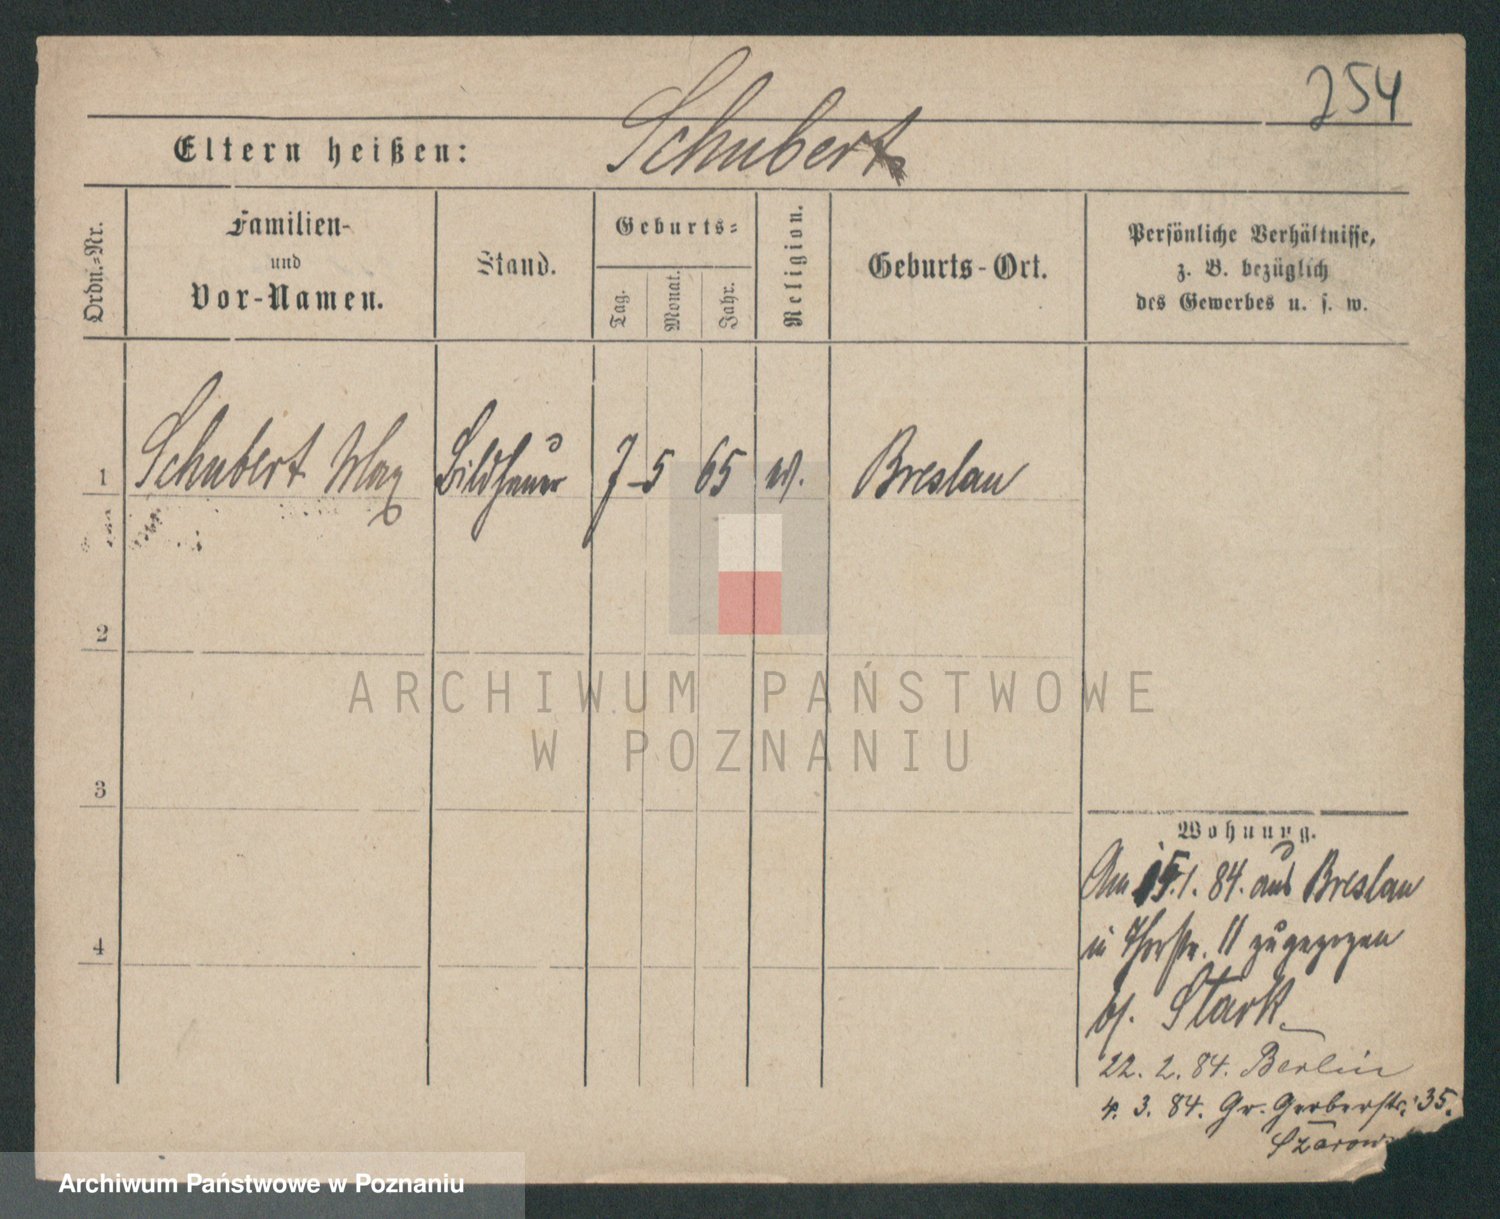 254
Eltern heißen: Schubert
Ordn.-Nr.
Familien-
und
Vor-Namen.
Stand.
Geburts-
Tag.
Monat.
Jahr.
Religion.
Geburts-Ort.
Persönliche Verhältnisse,
z. B. bezüglich
des Gewerbes u. s. w.
1 Schubert Max Bildhauer 7 5 65 Breslau
2
3
4
Wohnung.
Am 15.1. 84. aus Breslau
in Thorstr. 11 zugezogen
bf. Stark
22. 2. 84. Berlin
4. 3. 84. Gr. Gerberstr. 35.
ARCHIWUM PAŃSTWOWE
W POZNANIU
Archiwum Państwowe w Poznaniu